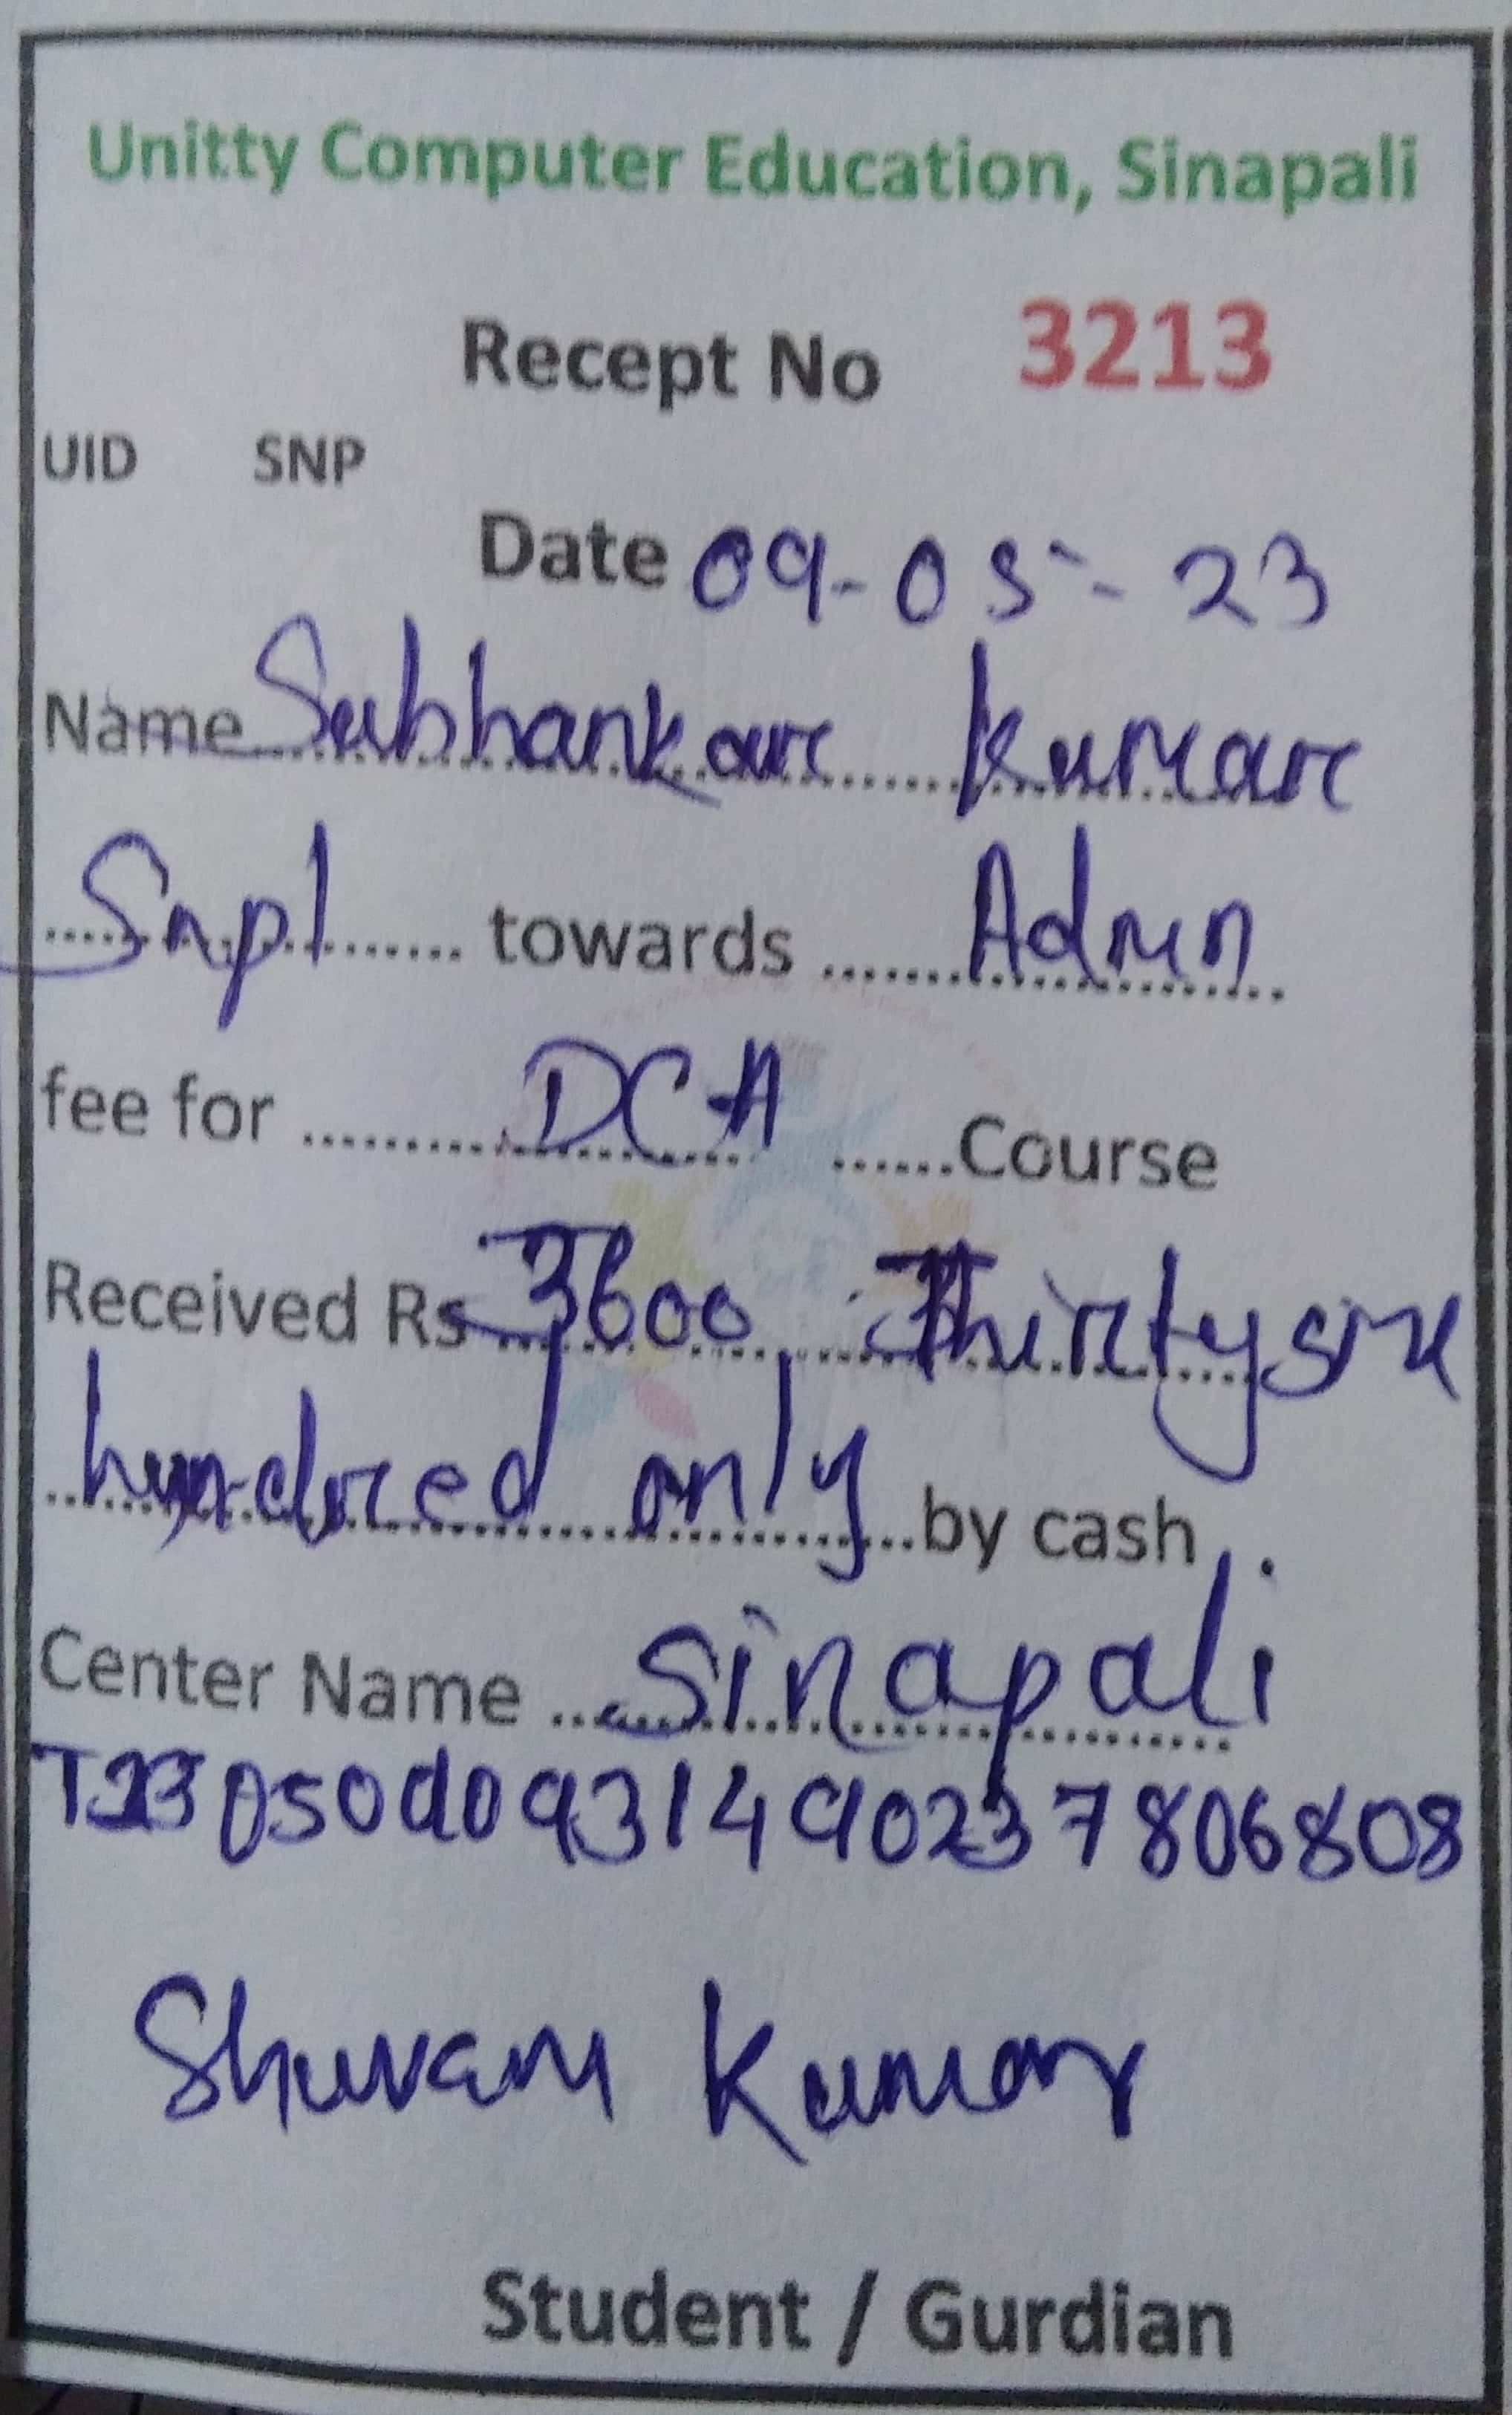 Unitty Computer Education, Sinapali
Recept No 3213
UID SNP
Date 09-05-23
Name Subhankar Kumar
Snpl towards Admn
fee for DCA Course
Received Rs 3600 Thirty six
hundred only by cash
Center Name Sinapali
Shuvam Kumar
Student / Gurdian